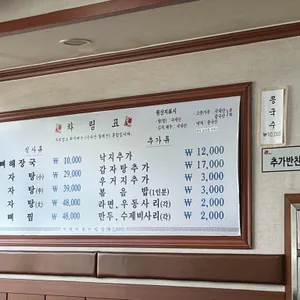 차 림 표
원산지표시
식사류
뼈해장국 ₩ 10,000
자 탕(小) ₩ 29,000
자 탕(中) ₩ 39,000
자 탕(大) ₩ 48,000
뼈 찜 ₩ 48,000
추가류
낙지추가 ₩ 12,000
감자탕추가 ₩ 17,000
우거지추가 ₩ 3,000
볶 음 밥(1인분) ₩ 3,000
라면,우동사리(각) ₩ 2,000
만두,수제비사리(각) ₩ 2,000
콩국수
₩10,000
추가반찬